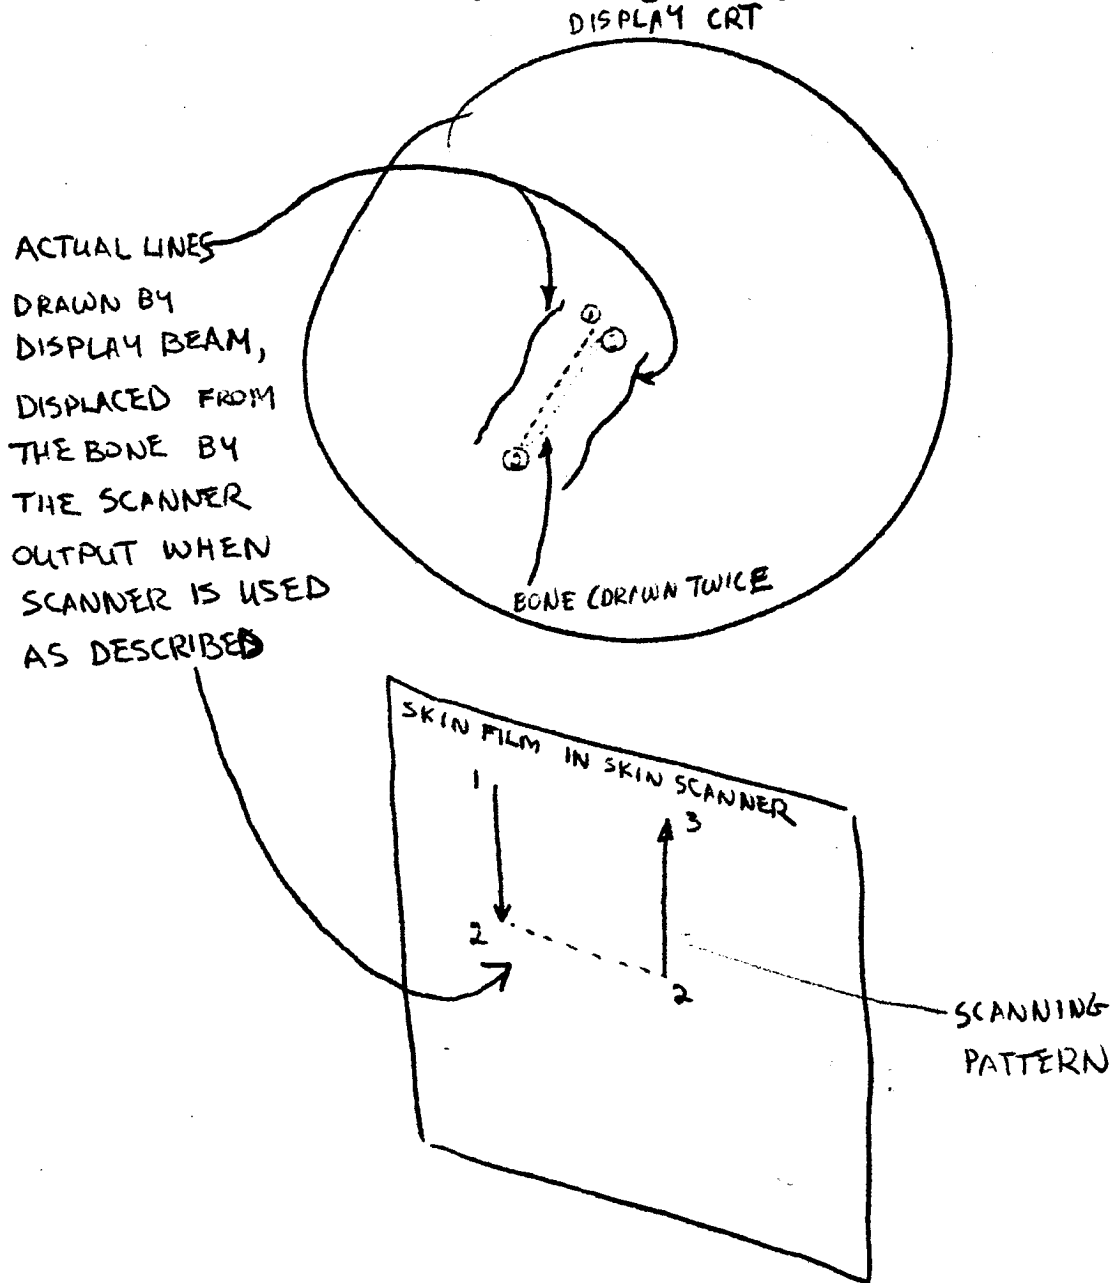 DISPLAY CRT
ACTUAL LINES
DRAWN BY
DISPLAY BEAM,
DISPLACED FROM
THE BONE BY
THE SCANNER
OUTPUT WHEN
SCANNER IS USED
AS DESCRIBED
1
2
BONE (DRAWN TWICE
SKIN FILM IN SKIN SCANNER
1
3
2
2
SCANNING
PATTERN